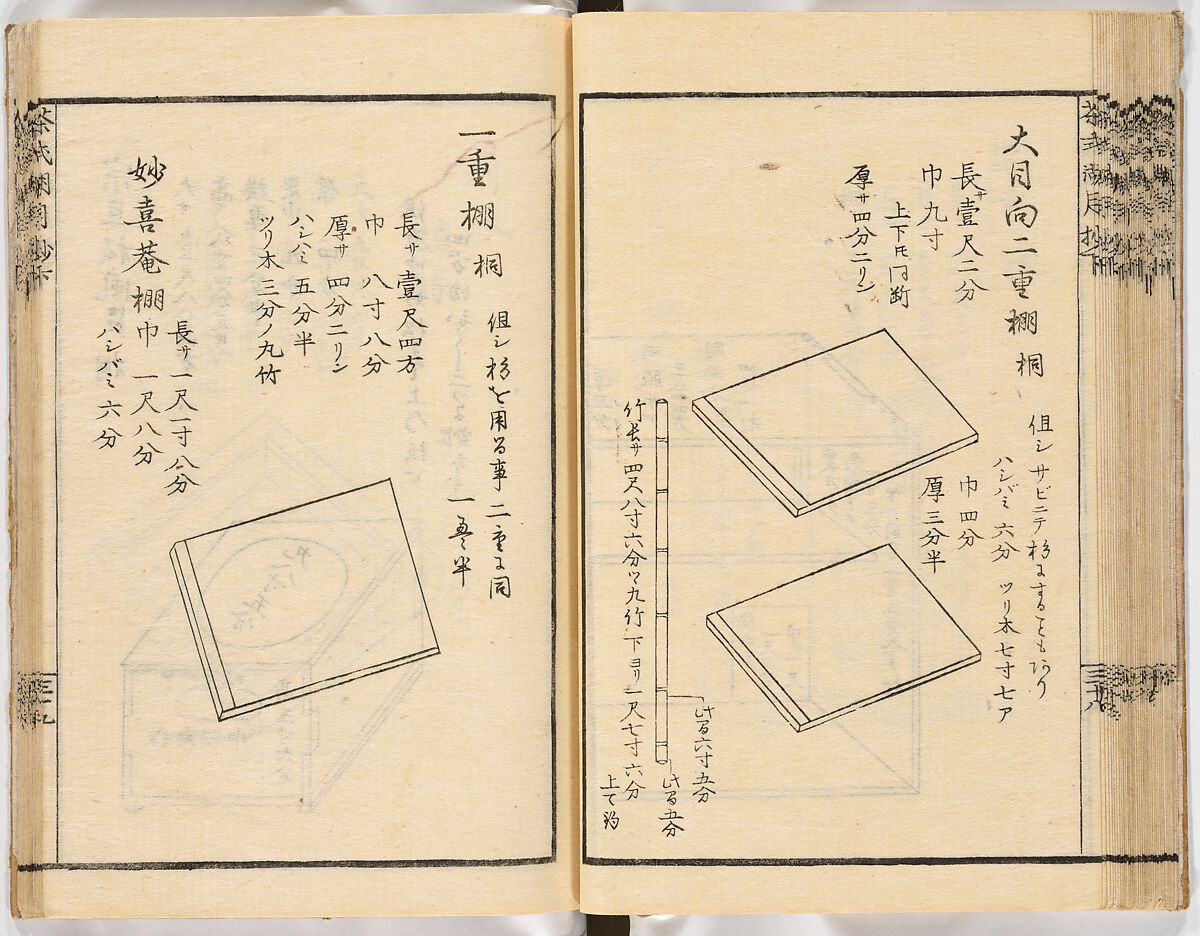 大目向二重棚 桐
但シ サビニテ 杉にすることもあり
ハシバミ 六分 ツリ木 七寸七ア
長サ 壹尺二分
巾 九寸
上下圧同断
厚サ 四分二リン
巾 四分
厚 三分半
此間六寸五分
此間五分
竹長サ 四尺八寸六分 ツ九竹 下ヨリ一尺七寸六分
上て釣
一重棚 桐
但シ 杉を用る事 二重に同
長サ 壹尺四方
巾 八寸八分
厚サ 四分二リン
ハシバミ 五分半
ツリ木 三分ノ丸竹
妙喜菴棚
長サ 一尺一寸八分
巾 一尺八分
ハシバミ 六分